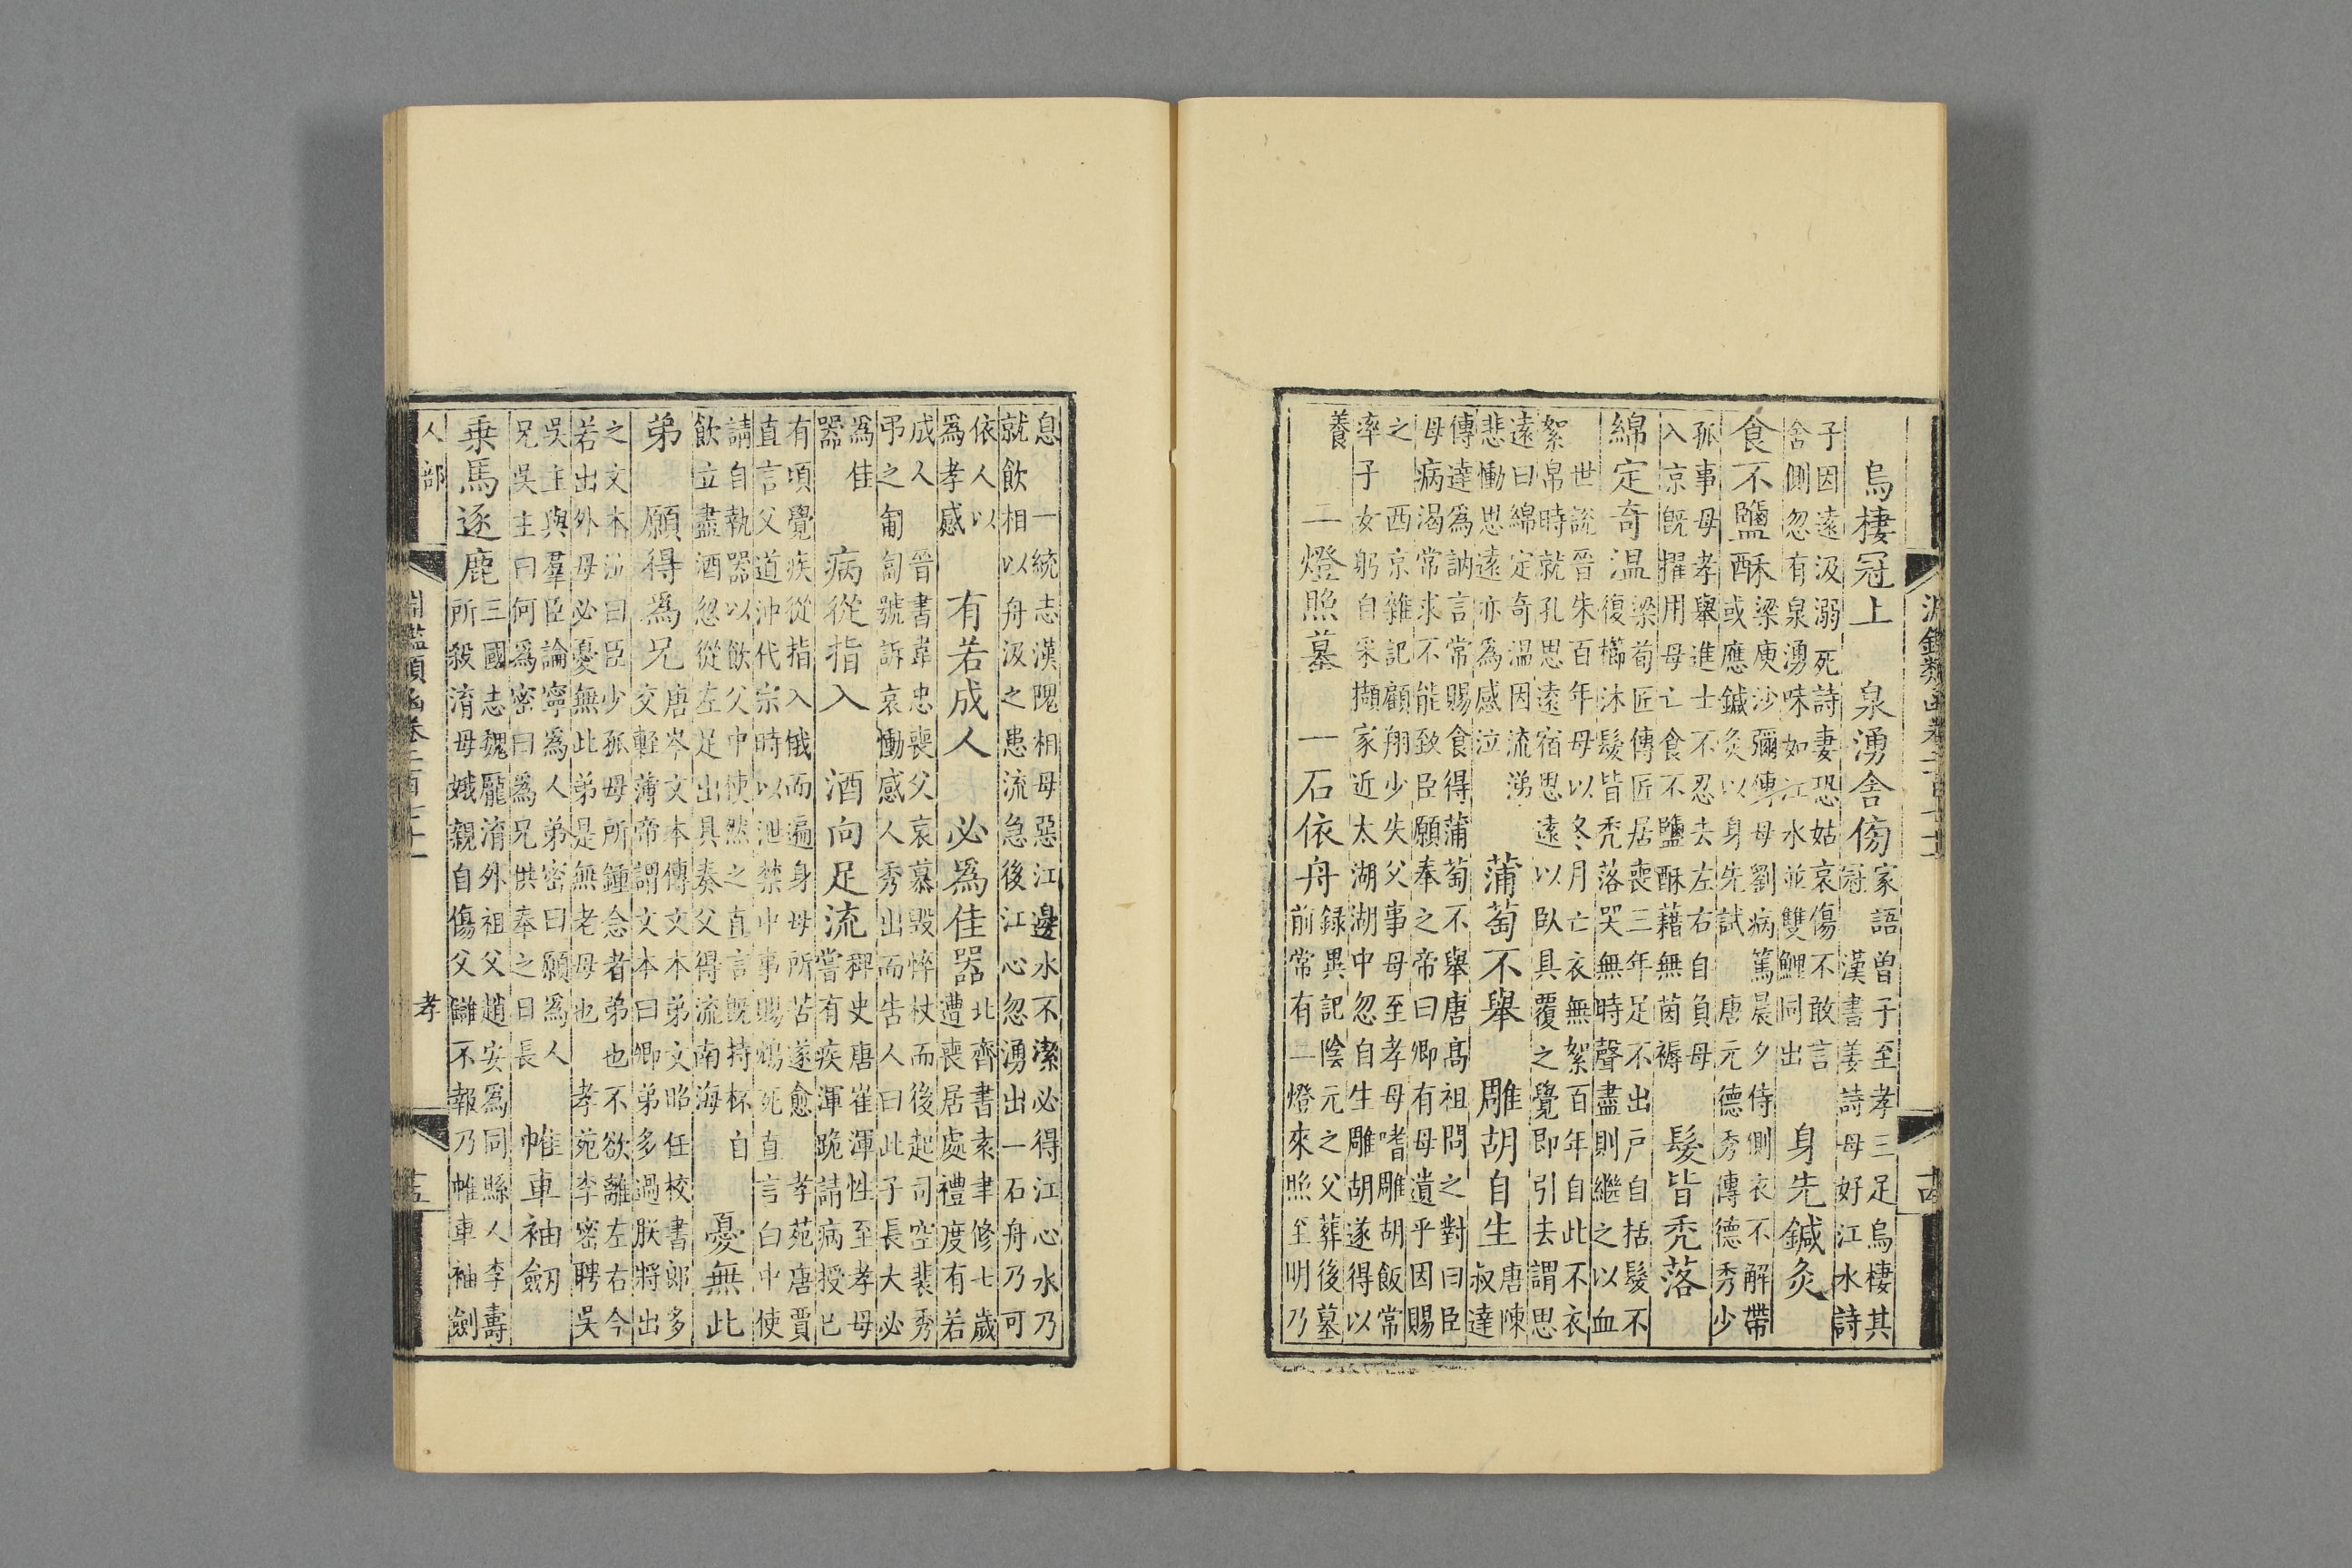 淵鑑類函卷二百七十一 十四
烏棲冠上 泉湧舍傍 家語曾子至孝三足烏棲其
冠 漢書姜詩母好江水詩
子因遠汲溺死詩妻恐姑哀傷不敢言
舍側忽有泉湧味如江水並雙鯉同出 身先鍼灸
食不鹽酥 梁庾沙彌傳母劉病篤晨夕侍側衣不解帶
或應鍼灸以身先試 唐元德秀傳德秀少
孤事母孝舉進士不忍去左右自負母
入京旣擢用母亡食不鹽酥藉無茵褥 髮皆禿落
綿定奇温 梁荀匠傳匠居喪三年足不出戶自括髮不
復櫛沐髮皆禿落哭無時聲盡則繼之以血
世說晉朱百年母以冬月亡衣無絮百年自此不衣
絮帛時就孔思遠宿思遠以臥具覆之覺即引去謂思
遠曰綿定奇温因流涕
悲慟思遠亦為感泣 蒲萄不舉 雕胡自生 唐陳
叔達
傳達為訥言常賜食得蒲萄不舉唐髙祖問之對曰臣
母病渴常求不能致臣願奉之帝曰卿有母遺乎因賜
之 西京雜記顧翔少失父事母至孝母嗜雕胡飯常
率子女躬自采擷家近太湖湖中忽自生雕胡遂得以
養 二燈照墓 一石依舟 錄異記陰元之父葬後墓
前常有二燈來照至明乃
息 一統志漢隗相母惡江邊水不潔必得江心水乃
就飲相以舟汲之患流急後江心忽湧出一石舟乃可
依人以
為孝感 有若成人 必為佳器 北齊書袁聿修七歲
遭喪居處禮度有若
成人 晉書韋忠喪父哀慕毀悴杖而後起司空裴秀
弔之匍匐號訴哀慟感人秀出而告人曰此子長大必
為佳
器 病從指入 酒向足流 稗史唐崔渾性至孝母
嘗有疾渾跪請病授已
有頃覺疾從指入俄而遍身母所苦遂愈 孝苑唐賈
直言父道沖代宗時以泄禁中事賜鴆死直言白中使
請自執器以飲父中使然之直言旣持杯自
飲立盡酒忽從左足出具奏父得流南海 憂無此
弟 願得為兄 唐岑文本傳文本弟文昭任校書郎多
交輕薄帝謂文本曰卿弟多過朕將出
之文本泣曰臣少孤母所鍾念者弟也不欲離左右今
若出外母必憂無此弟是無老母也 孝苑李密聘吳
吳主與羣臣論寧為人弟密曰願為人
兄吳主曰何為密曰為兄供奉之日長 帷車袖劒
乗馬逐鹿 三國志魏龐淯外祖父趙安為同縣人李壽
所殺淯母娥親自傷父讎不報乃帷車袖劍
人部 淵鑑類函卷二百七十一 孝 十五